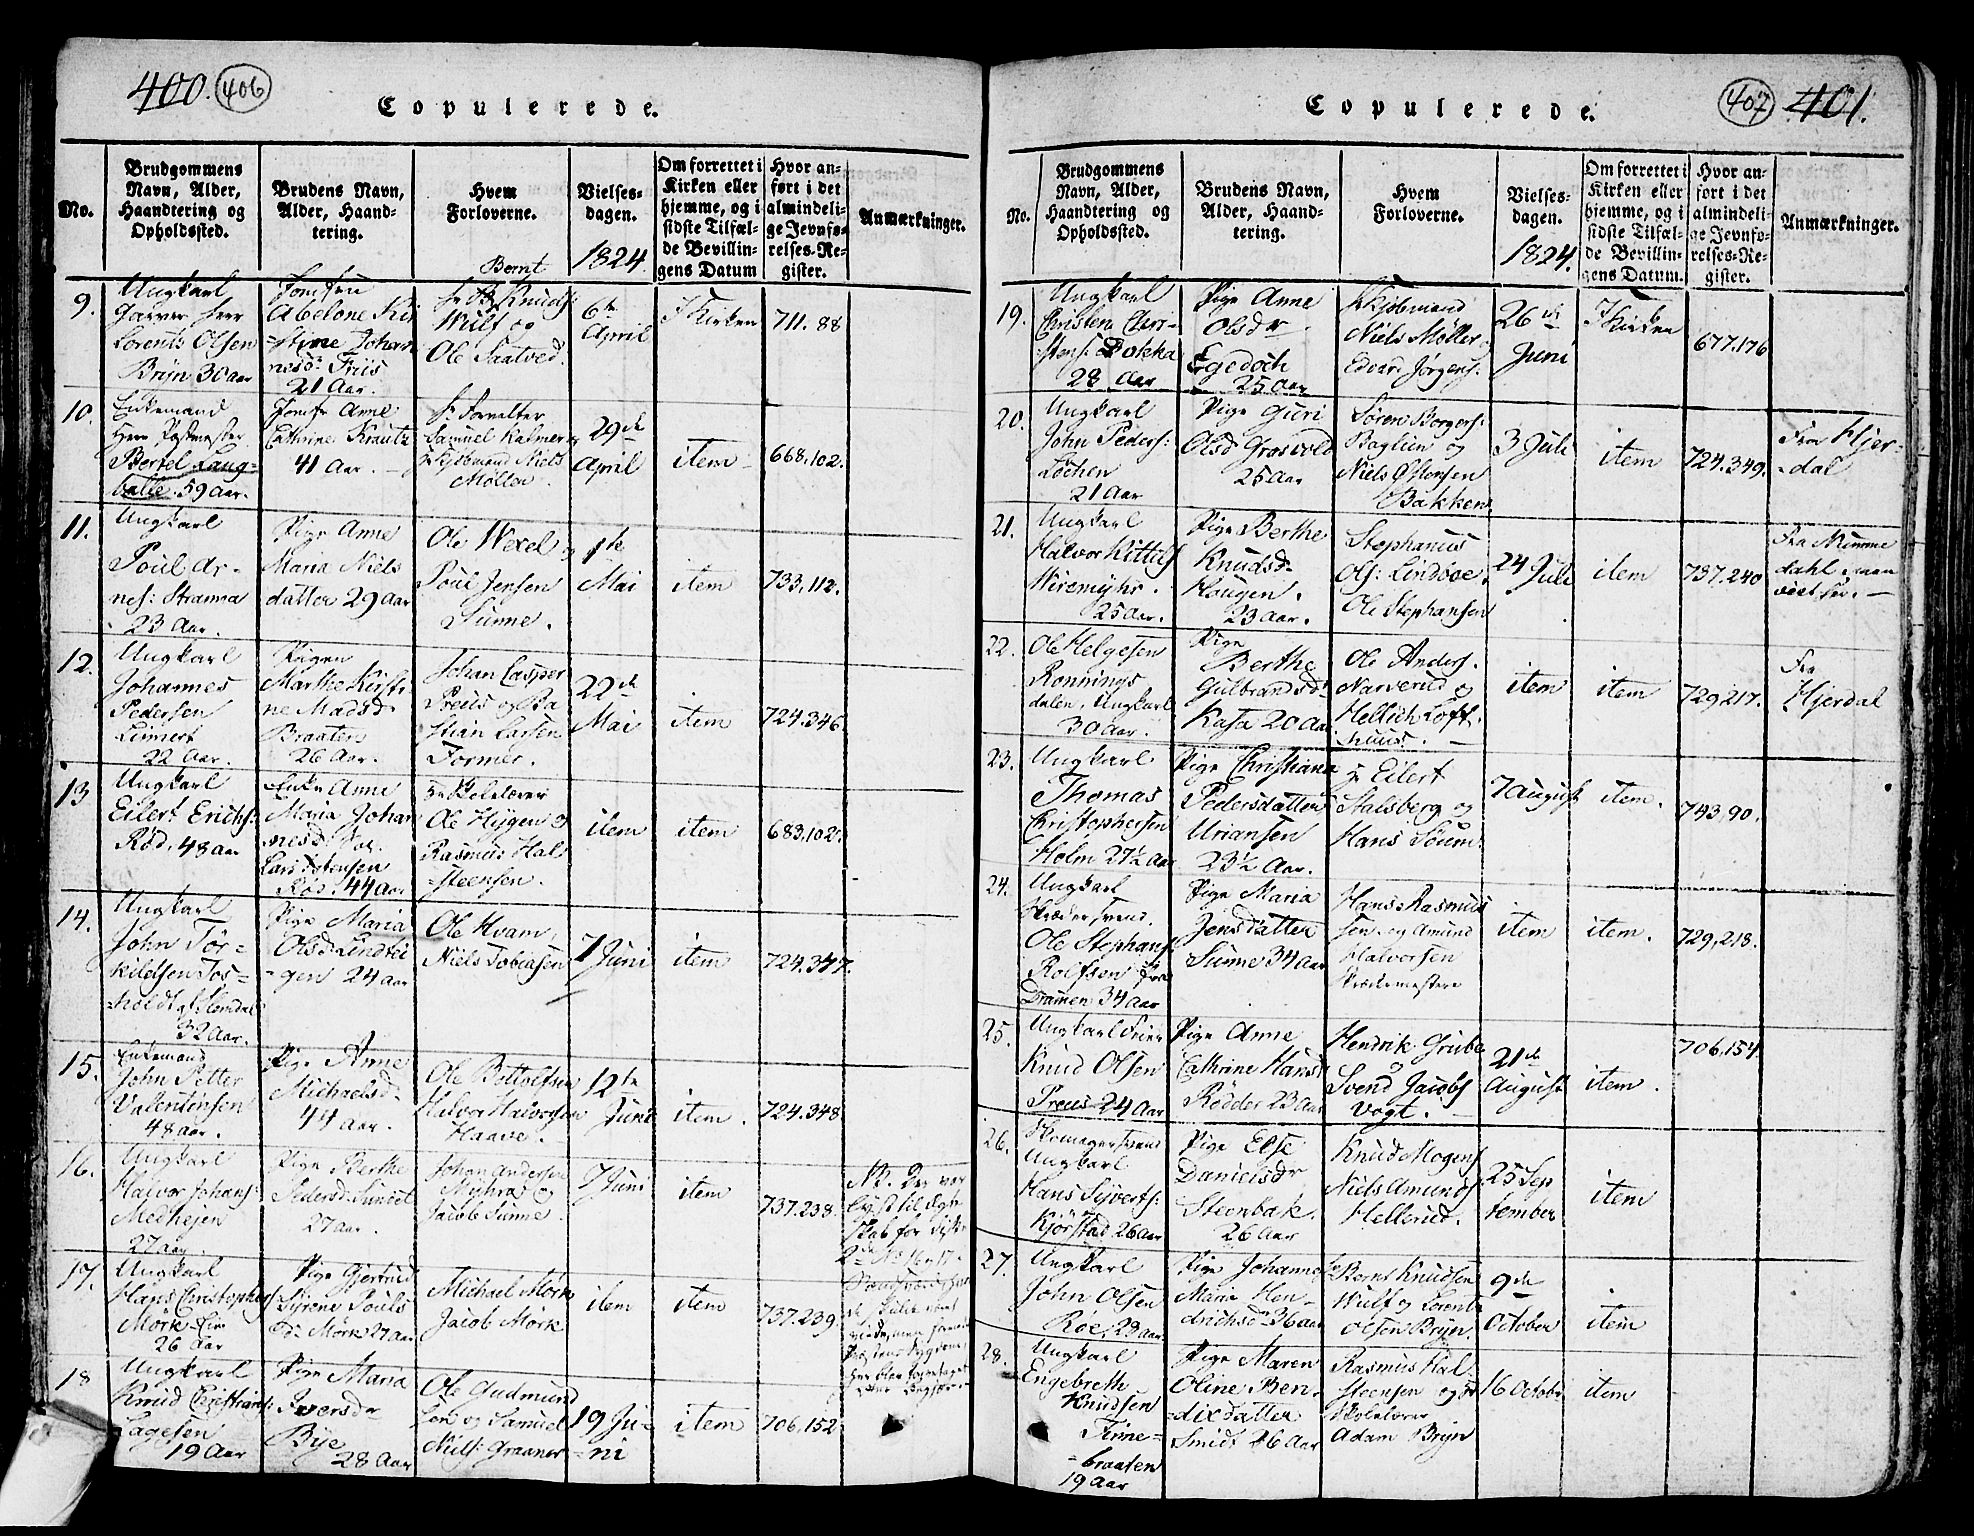 400. 406
Copulerede.
No.
Brudgommens
Navn, Alder,
Haandtering og
Opholdssted.
Brudens Navn,
Alder, Haand-
tering.
Hvem
Forloverne.
Vielses-
dagen.
1824
Om forrettet i
Kirken eller
hjemme, og i
sidste Tilfæl-
de Bevillin-
gens Datum
Hvor an-
ført i det
almindeli-
ge Jevnfø-
relses-Re-
gister.
Anmærkninger.
9.
Ungkarl
Garver Herr
Lorents Olsen
Bryn 30 aar
Jomfru
Abelone Kir
=stine Johan
nesdr Friis
21 Aar.
Bernt
Knuds:
Wulf og
Ole Saatved.
6te
April
I Kirken
711. 88
10.
Enkemand
Herr Postmester
Bertel Lang-
balle. 59 aar.
Jomfr Anne
Cathrine Krautz
41 Aar.
Hr Forvalter
Samuel Kalmer
Niels
Møller.
29de
April
item
668,102.
11.
Ungkarl
Poul Ar-
nes: Stranna
23 Aar.
Pige Anne
Maria Niels
datter 29 aar
Ole Wexel og
Poul Jensen
Sunne.
1te
Mai
item
733,112.
12.
Ungkarl
Johannes
Pedersen
Linnert
22 Aar.
Pigen
Marthe Kirsti
ne Madsd
Braaten
26 Aar.
Johan Casper
Preus og Ba
Stian Larsen
Former.
22de
Mai
item
724.346.
13
Ungkarl
Eilert Erichs:
Rød, 48 aar
Enke Anne
Maria Johan
nesd: for
Lars
Røs 44 Aar
Hr Skolelærer
Ole Hejgen og
Rasmus Hal
=steensen.
item
item
683,102.
14.
Ungkarl
John Tor-
kildsen Tos-
holdt af Slemdal
32 Aar.
Pige Maria
Olsd: Lindtei
=gen 24 aar
Ole Hvam,
Niels Tobiasen
7 Juni
item
724.347.
15.
Enkemand
John Petter
Valentinsen
48 aar.
Pige Anne
Michaelsd
44 aar.
Ole Bottolfsen
Halvor Halvorsen
Haave.
12te
Juni
item.
724.348
16.
Ungkarl
Halvor Johans:
Medhejen
27 aar.
Pige Berthe
Pedersd: Sundet
27 aar.
Johan Andersen
Myhra og
Jacob Sunne.
7 Juni
item
737.238.
17.
Ungkarl
Hans Christophers
Mørk
26 Aar
Pige Gjertrud
Syrene Pouls
d. Mørk 27 aar
Michael Mørk
Jacob Mørk
item
item
737.239.
18
Ungkarl
Knud Christians:
Lagesen
19 Aar
Pige Maria
Iversdr
Bye
28 Aar
Ole Gudmund
sen og Samuel
Niels: Graaner
19 Ju-
=ni
item
706,152
407 401.
Copulerede.
No.
Brudgommens
Navn, Alder,
Haandtering og
Opholdssted.
Brudens Navn,
Alder, Haand-
tering.
Hvem
Forloverne.
Vielses-
dagen.
1824.
Om forrettet i
Kirken eller
hjemme, og i
sidste Tilfæl-
de Bevillin-
gens Datum.
Hvor an-
ført i det
almindeli-
ge Jevnfø-
relses-Re-
gister.
Anmærkninger.
19.
Ungkarl
Christen Chri-
stens: Dokka
28 Aar
Pige Anne
Olsdr
Egedoch
25 Aar
Niels Møller
Edvar Jørgens:
26de
Juni
I Kirken
677.176
20.
Ungkarl
John Peders:
Løchen
21 Aar
Pige Guri
Olsd Grosvold
25 Aar
Søren Borgers:
Baglien og
Niels Østensen
Bakken
3 Juli
item
724.349.
Fra Hjer-
dal
21.
Ungkarl
Halvor Kittils
Wiremyhr.
25 aar.
Pige Berthe
Knudsd
Haugen.
23 aar.
Stephanus
Ols: Lindboe,
Ole Stephansen
24 Juli
item
737.240
Fra Numme
dahl
22.
Ole Helgesen
Rønnings
dalen, Ungkarl
30 aar.
Pige
Berthe
Gulbrandsd
Kasa 20 Aar
Ole Anders.
Narverud og
Hellich Loft
huus.
item
item
729,217.
Fra
Hjerdal
23.
Ungkarl
Thomas
Christophersen
Holm 27½ Aar
Pige Christiana
Pedersdatter
Uriansen
23½ Aar.
Hr Eilert
Stalsberg og
Hans Soum
7 August
item.
743,90.
24.
Ungkarl
Skrædersvend.
Ole Stephans
Rolfsen fra
Dramen 34 aar
Pige Maria
Jensdatter
Sunne 34 aar
Hans Rasmus
sen og Amund
Halvorsen
Skrædermestere
item
item.
729,218.
25.
Ungkarl Feier
Knud Olsen
Preus 24 Aar
Pige Anne
Cathrine Hans
Rødder 23 aar
Hendrik Grube
og
Svend Jacobs
Vogt.
21de
August
item.
706,154
26.
Skomagersvend
Ungkarl
Hans Syverts:
Kjørstad 26 aar
Pige Else
Danielsdr
Steenbak.
26 Aar
Knud Mogens
Niels Amunds
Hellerud.
25 Sep
tember
item
27.
Ungkarl
John Olsen
Roe, 28 aar
Pige Johanne
Maria Hen-
drichsdr 36 aar
Bernt Knudsen
Wulf og Lorentz
Olsen Bryn.
9de
October
item
28.
Ungkarl
Engebreth
Knudsen
Tinne-
=braaten
19 Aar
Pige Maren
Oline Ben-
dixdatter
Smidt 26 Aar
Rasmus Hal
Steensen og Hr
Skolelærer
Adam Bryn
16 Octobr
item